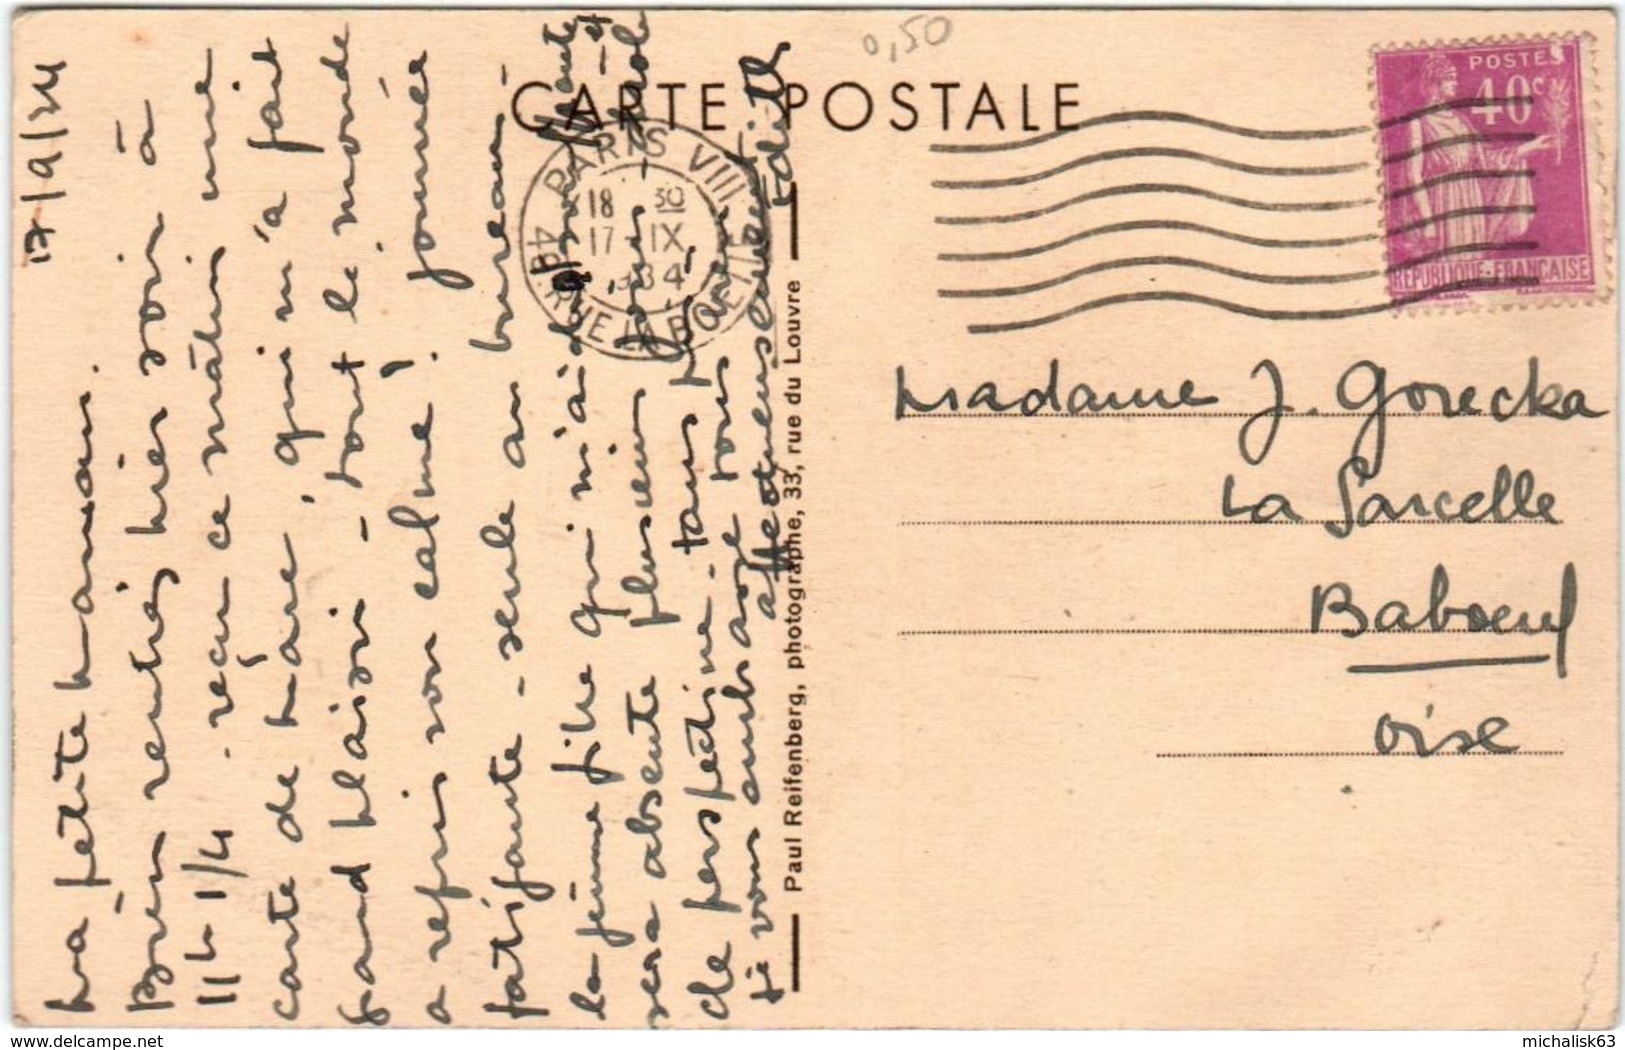 0,50
CARTE POSTALE
POSTES
40c
REPUBLIQUE-FRANÇAISE
PARIS VIII
18 30
17 IX
34
48 R. RUE LA BOETIE
17/9/34
Ma petite maman.
Bien rentrés hier soir à
11h 1/4 - reçu ce matin une
carte de Mère, qui m'a fait
grand plaisir - tout le monde
a repris son calme! journée
fatigante - seule au bureau -
la jeune fille qui m'aide
sera absente plusieurs jours
de perspective - tous
je vous embrasse tous
affectueusement
Edith
Paul Reifenberg, photographe, 33, rue du Louvre
Madame J. Gorecka
La Sarcelle
Baboeuf
Oise
michalisk63